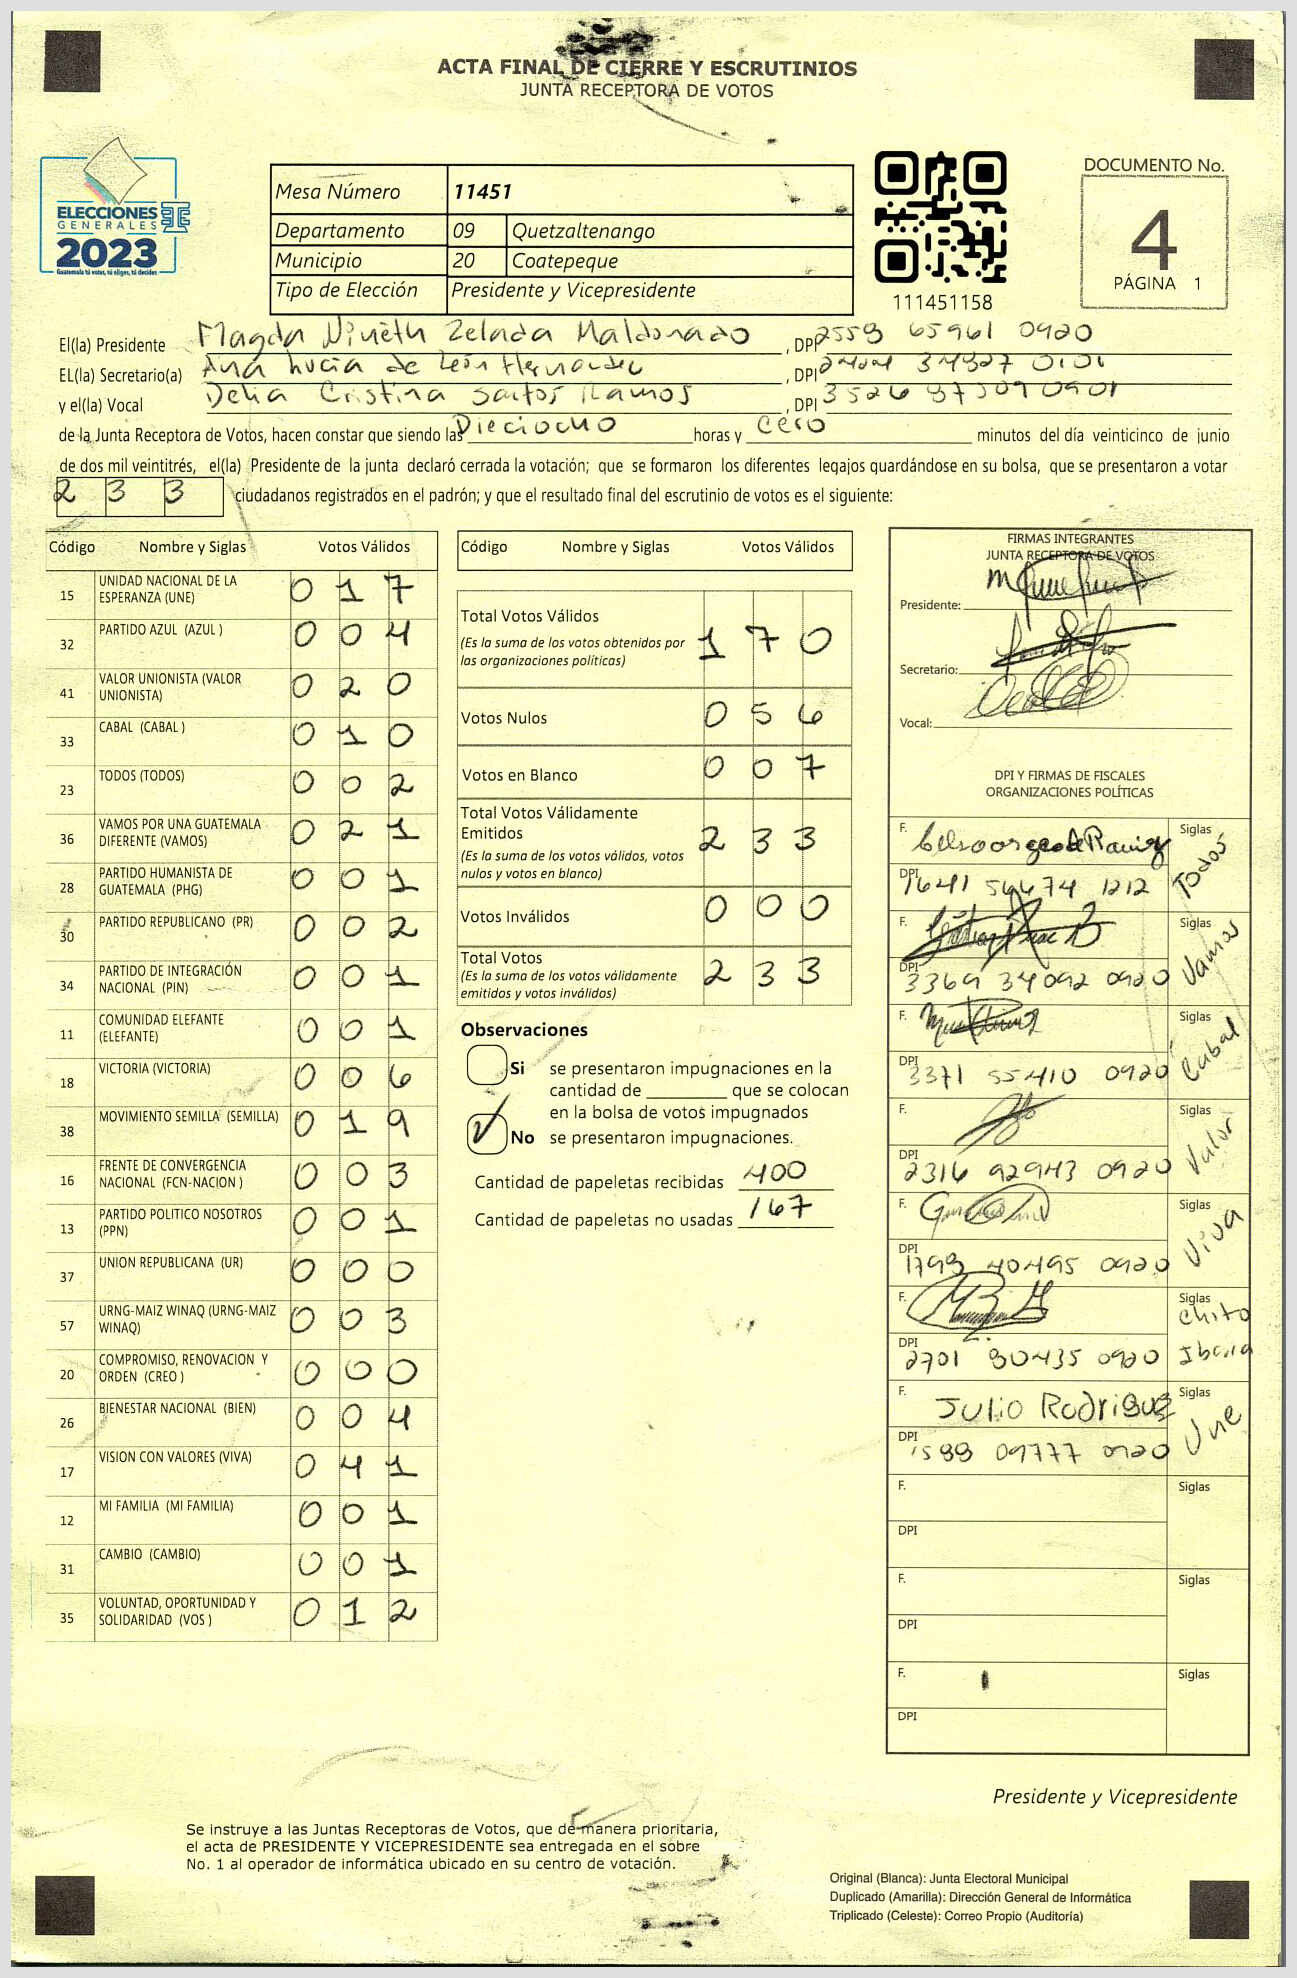 ACTA FINAL DE CIERRE Y ESCRUTINIOS
JUNTA RECEPTORA DE VOTOS
ELECCIONES
GENERALES
2023
Guatemala tú votas, tú eliges, tú decides
Mesa Número 11451
Departamento 09 Quetzaltenango
Municipio 20 Coatepeque
Tipo de Elección Presidente y Vicepresidente
111451158
DOCUMENTO No.
4
PÁGINA 1
El(la) Presidente Magda Nineth Zelada Maldonado, DPI 2559 65961 0920
EL(la) Secretario(a) Ana Lucia de León Hernandez, DPI 0101
y el(la) Vocal Delia Cristina Santos Ramos, DPI 3526 0901
de la Junta Receptora de Votos, hacen constar que siendo las Dieciocho horas y Cero minutos del día veinticinco de junio
de dos mil veintitrés, el(la) Presidente de la junta declaró cerrada la votación; que se formaron los diferentes legajos guardándose en su bolsa, que se presentaron a votar
2 3 3 ciudadanos registrados en el padrón; y que el resultado final del escrutinio de votos es el siguiente:
Código Nombre y Siglas Votos Válidos
15 UNIDAD NACIONAL DE LA ESPERANZA (UNE) 0 1 7
32 PARTIDO AZUL (AZUL ) 0 0 4
41 VALOR UNIONISTA (VALOR UNIONISTA) 0 2 0
33 CABAL (CABAL ) 0 1 0
23 TODOS (TODOS) 0 0 2
36 VAMOS POR UNA GUATEMALA DIFERENTE (VAMOS) 0 2 1
28 PARTIDO HUMANISTA DE GUATEMALA (PHG) 0 0 1
30 PARTIDO REPUBLICANO (PR) 0 0 2
34 PARTIDO DE INTEGRACIÓN NACIONAL (PIN) 0 0 1
11 COMUNIDAD ELEFANTE (ELEFANTE) 0 0 1
18 VICTORIA (VICTORIA) 0 0 6
38 MOVIMIENTO SEMILLA (SEMILLA) 0 1 9
16 FRENTE DE CONVERGENCIA NACIONAL (FCN-NACION ) 0 0 3
13 PARTIDO POLITICO NOSOTROS (PPN) 0 0 1
37 UNION REPUBLICANA (UR) 0 0 0
57 URNG-MAIZ WINAQ (URNG-MAIZ WINAQ) 0 0 3
20 COMPROMISO, RENOVACION Y ORDEN (CREO ) 0 0 0
26 BIENESTAR NACIONAL (BIEN) 0 0 4
17 VISION CON VALORES (VIVA) 0 4 1
12 MI FAMILIA (MI FAMILIA) 0 0 1
31 CAMBIO (CAMBIO) 0 0 1
35 VOLUNTAD, OPORTUNIDAD Y SOLIDARIDAD (VOS ) 0 1 2
Código Nombre y Siglas Votos Válidos
Total Votos Válidos 1 7 0
(Es la suma de los votos obtenidos por
las organizaciones políticas)
Votos Nulos 0 5 6
Votos en Blanco 0 0 7
Total Votos Válidamente
Emitidos 2 3 3
(Es la suma de los votos válidos, votos
nulos y votos en blanco)
Votos Inválidos 0 0 0
Total Votos 2 3 3
(Es la suma de los votos válidamente
emitidos y votos inválidos)
Observaciones
Si se presentaron impugnaciones en la
cantidad de ________ que se colocan
en la bolsa de votos impugnados
No se presentaron impugnaciones.
Cantidad de papeletas recibidas 400
Cantidad de papeletas no usadas 167
FIRMAS INTEGRANTES
JUNTA RECEPTORA DE VOTOS
Presidente:
Secretario:
Vocal:
DPI Y FIRMAS DE FISCALES
ORGANIZACIONES POLÍTICAS
F. Siglas Todos
DPI 1641 56674 1212
F. Siglas Vamos
DPI 3369 34092 0920
F. Siglas Cabal
DPI 3371 55410 0920
F. Siglas Valor
DPI 2316 92943 0920
F. Siglas Viva
DPI 1793 40495 0920
F. Siglas Chito
DPI 2701 0920
F. Julio Rodriguez Siglas Une
DPI 09777 0920
F. Siglas
DPI
F. Siglas
DPI
F. Siglas
DPI
Presidente y Vicepresidente
Se instruye a las Juntas Receptoras de Votos, que de manera prioritaria,
el acta de PRESIDENTE Y VICEPRESIDENTE sea entregada en el sobre
No. 1 al operador de informática ubicado en su centro de votación.
Original (Blanca): Junta Electoral Municipal
Duplicado (Amarilla): Dirección General de Informática
Triplicado (Celeste): Correo Propio (Auditoría)